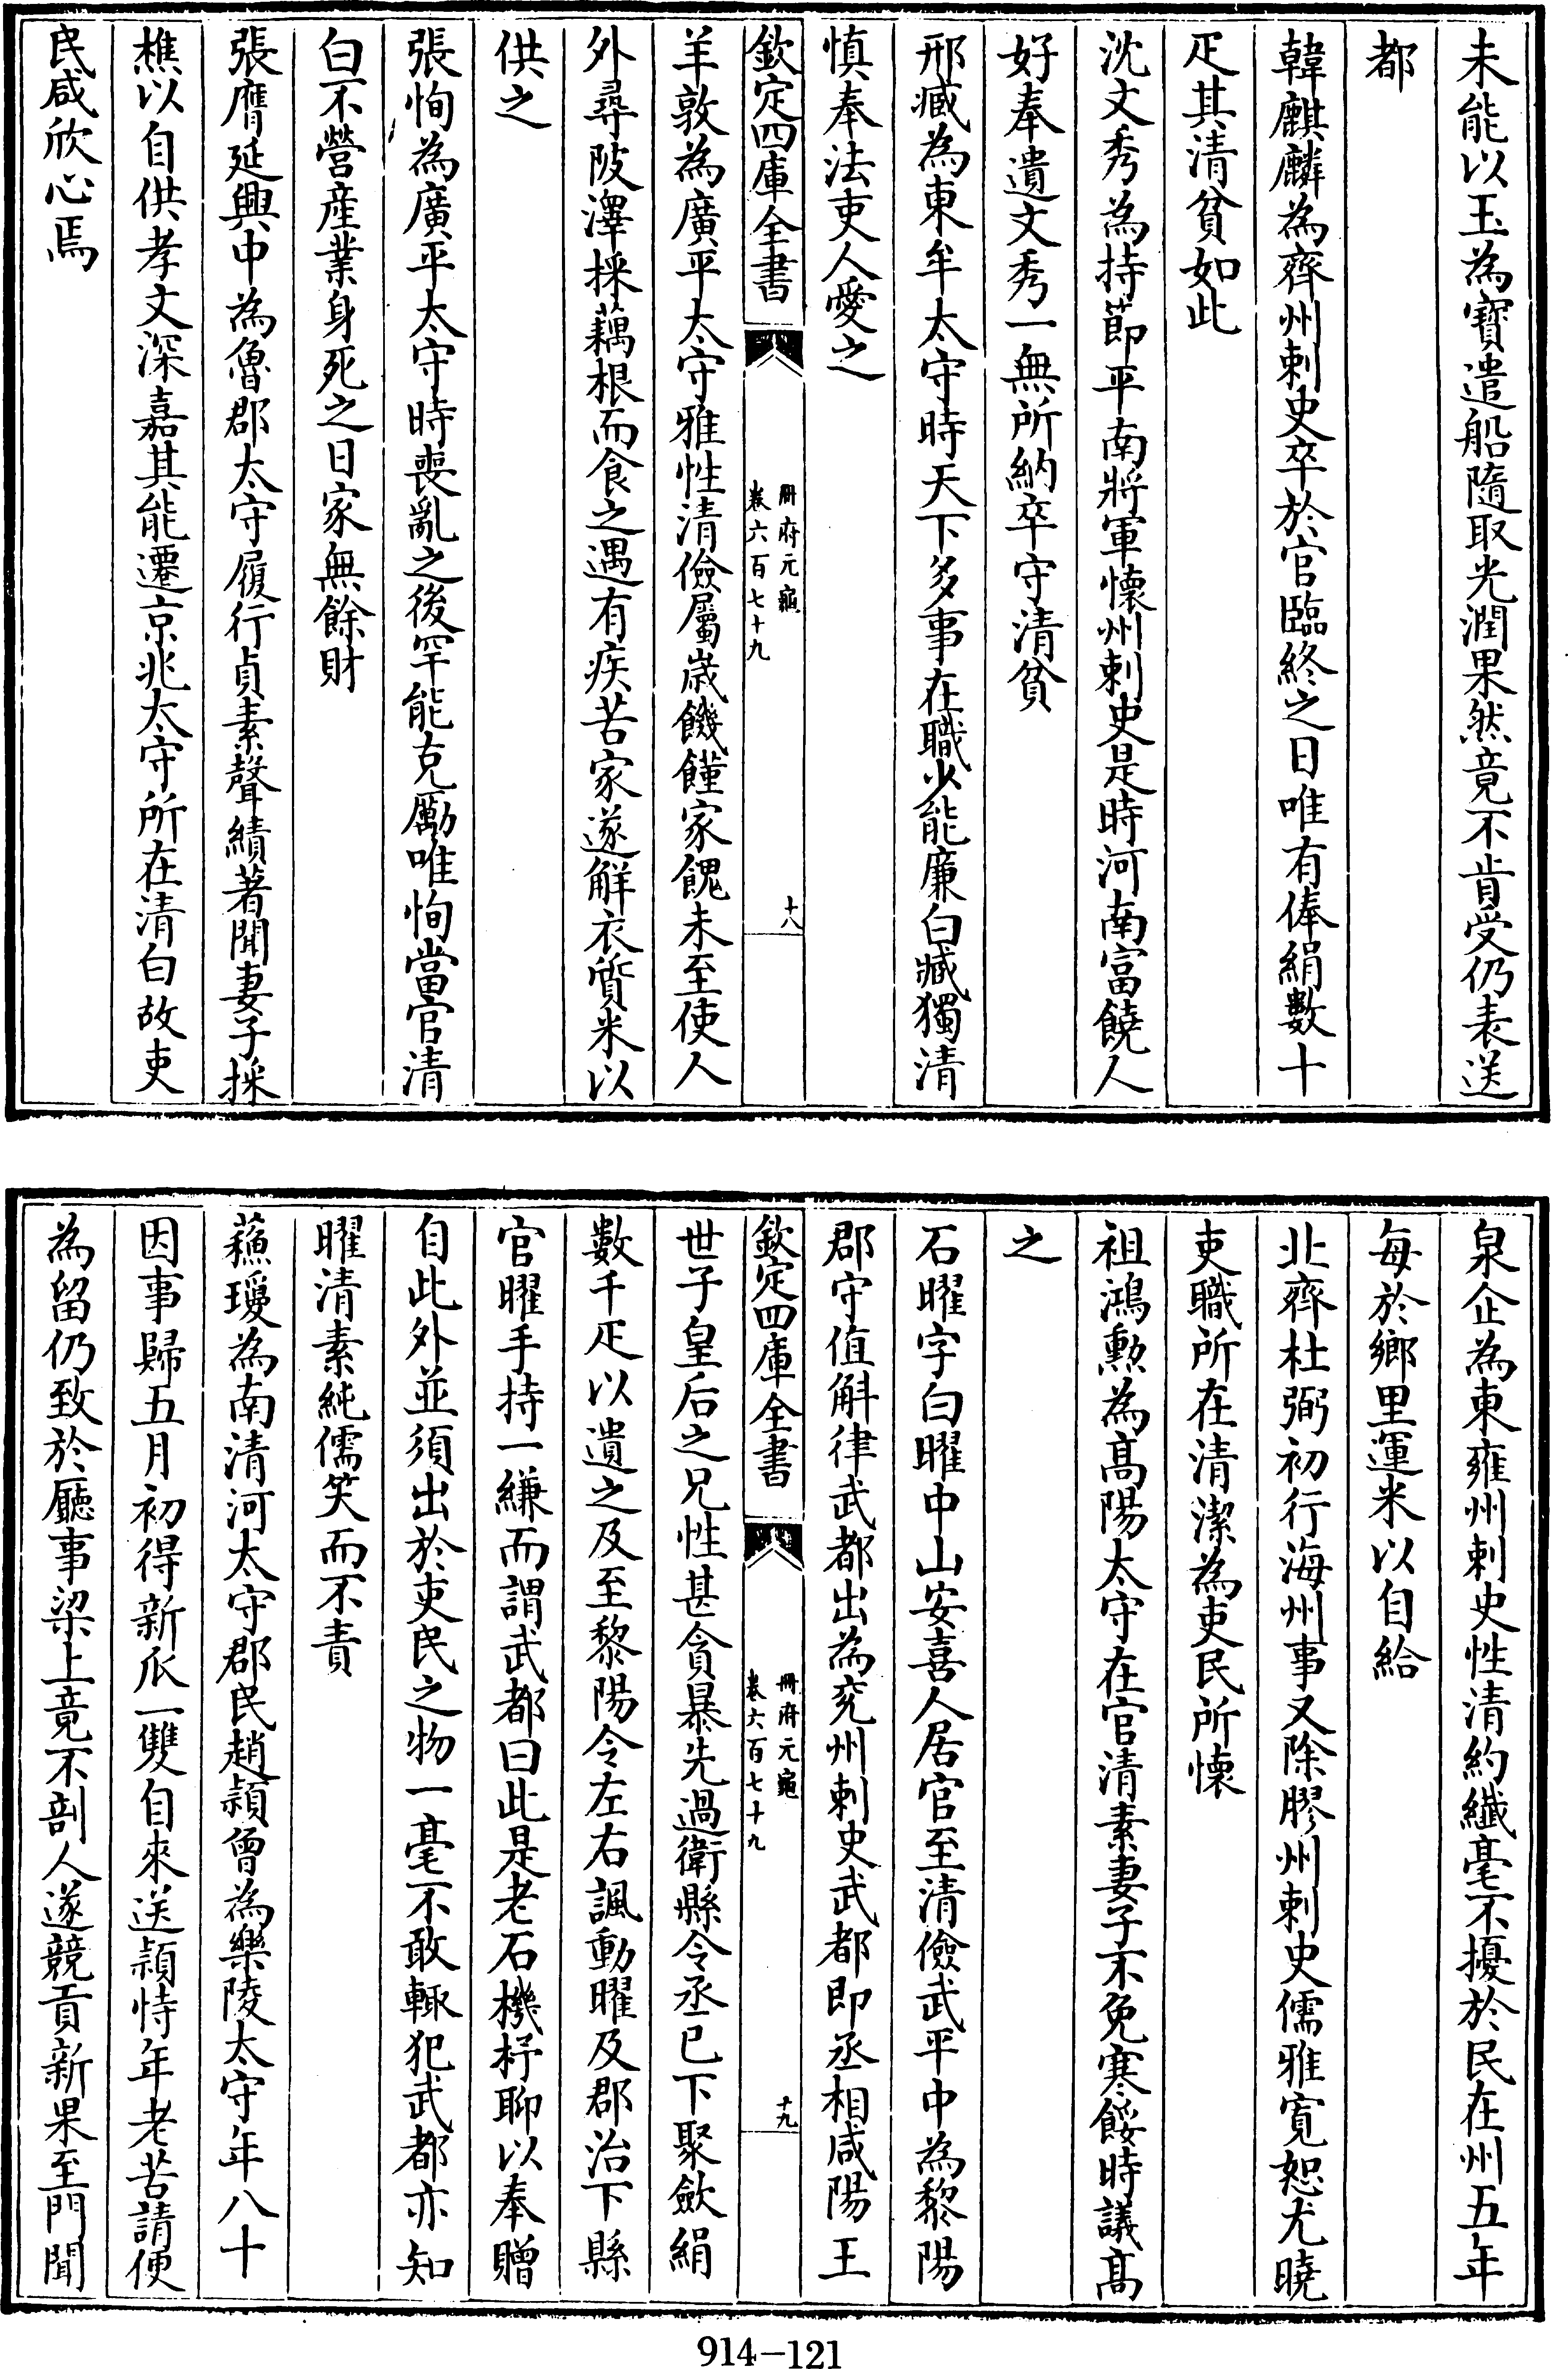 未能以玉為寳遣船隨取光潤果然竟不肯受仍表送
都
韓麒麟為齊州刺史卒於官臨終之日唯有俸絹數十
疋其清貧如此
沈文秀為持節平南將軍懷州刺史是時河南富饒人
好奉遺文秀一無所納卒守清貧
邢臧為東牟太守時天下多事在職少能廉白臧獨清
慎奉法吏人愛之
欽定四庫全書
冊府元龜
卷六百七十九
十八
羊敦為廣平太守雅性清儉屬嵗饑饉家餽未至使人
外尋陂澤採藕根而食之遇有疾苦家遂解衣質米以
供之
張恂為廣平太守時喪亂之後罕能克勵唯恂當官清
白不營産業身死之日家無餘財
張膺延興中為魯郡太守履行貞素聲績著聞妻子採
樵以自供孝文深嘉其能遷京兆太守所在清白故吏
民咸欣心焉
泉企為東雍州刺史性清約纖毫不擾於民在州五年
每於鄉里運米以自給
北齊杜弼初行海州事又除膠州刺史儒雅寛恕尤曉
吏職所在清潔為吏民所懷
祖鴻勲為髙陽太守在官清素妻子不免寒餒時議髙
之
石曜字白曜中山安喜人居官至清儉武平中為黎陽
郡守值斛律武都出為兖州刺史武都即丞相咸陽王
欽定四庫全書
冊府元龜
卷六百七十九
十九
世子皇后之兄性甚貪暴先過衛縣令丞已下聚歛絹
數千疋以遺之及至黎陽令左右諷動曜及郡治下縣
官曜手持一縑而謂武都曰此是老石機杼聊以奉贈
自此外並須出於吏民之物一毫不敢輒犯武都亦知
曜清素純儒笑而不責
蘓瓊為南清河太守郡民趙頴曾為樂陵太守年八十
因事歸五月初得新瓜一雙自來送頴恃年老苦請便
為留仍致於廳事梁上竟不剖人遂競貢新果至門聞
914-121